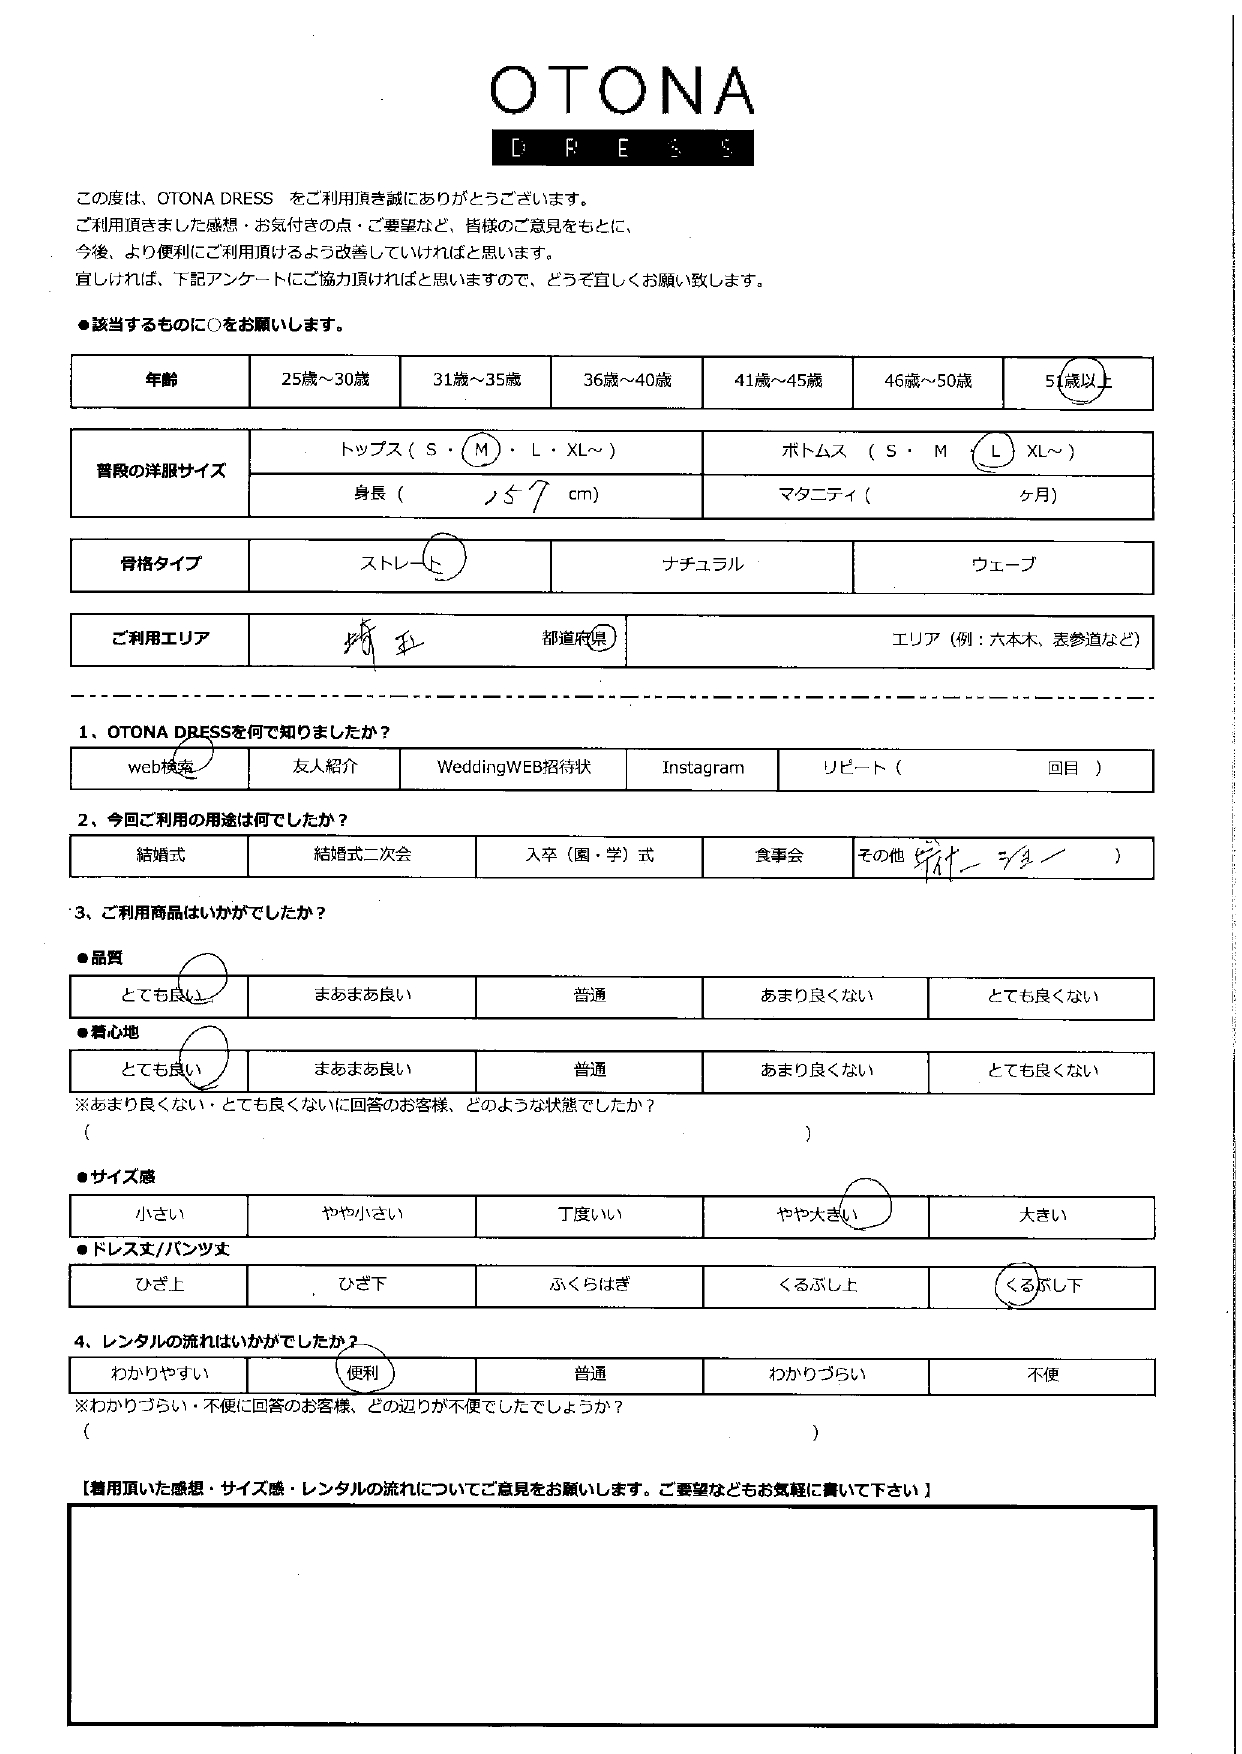 OTONA
DRESS
この度は、OTONA DRESS をご利用頂き誠にありがとうございます。
ご利用頂きました感想・お気付きの点・ご要望など、皆様のご意見をもとに、
今後、より便利にご利用頂けるよう改善していければと思います。
宜しければ、下記アンケートにご協力頂ければと思いますので、どうぞ宜しくお願い致します。
●該当するものに○をお願いします。
年齢 25歳～30歳 31歳～35歳 36歳～40歳 41歳～45歳 46歳～50歳 51歳以上
普段の洋服サイズ トップス ( S ・ M ・ L ・ XL～ ) ボトムス ( S ・ M L XL～ )
身長 ( 157 cm) マタニティ ( ヶ月)
骨格タイプ ストレート ナチュラル ウェーブ
ご利用エリア 埼玉 都道府県 エリア（例：六本木、表参道など）
1、OTONA DRESSを何で知りましたか？
web検索 友人紹介 WeddingWEB招待状 Instagram リピート ( 回目 )
2、今回ご利用の用途は何でしたか？
結婚式 結婚式二次会 入卒（園・学）式 食事会 その他 )
3、ご利用商品はいかがでしたか？
●品質
とても良い まあまあ良い 普通 あまり良くない とても良くない
●着心地
とても良い まあまあ良い 普通 あまり良くない とても良くない
※あまり良くない・とても良くないに回答のお客様、どのような状態でしたか？
( )
●サイズ感
小さい やや小さい 丁度いい やや大きい 大きい
●ドレス丈/パンツ丈
ひざ上 ひざ下 ふくらはぎ くるぶし上 くるぶし下
4、レンタルの流れはいかがでしたか？
わかりやすい 便利 普通 わかりづらい 不便
※わかりづらい・不便に回答のお客様、どの辺りが不便でしたでしょうか？
( )
【着用頂いた感想・サイズ感・レンタルの流れについてご意見をお願いします。ご要望などもお気軽に書いて下さい】